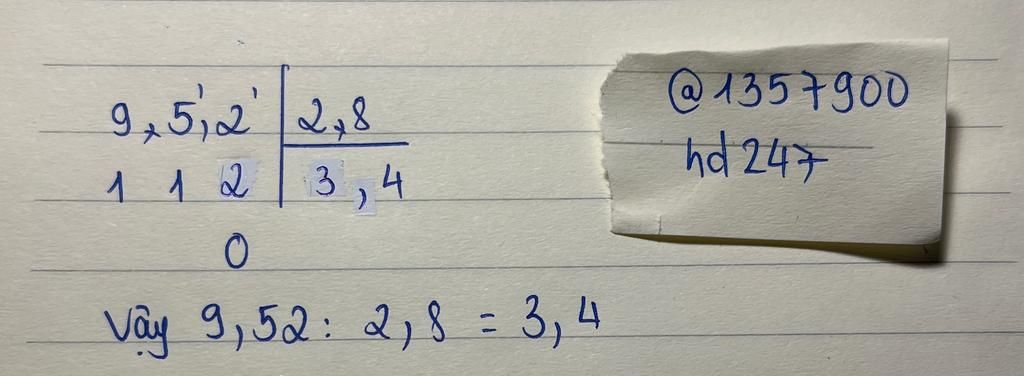 9,5,2 2,8
1 1 2 3,4
0
Vậy 9,52: 2,8 = 3,4
@1357900
hd247